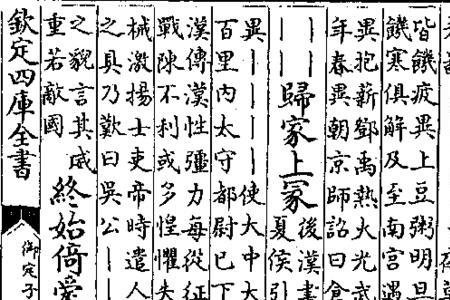 皆饑疲異上豆粥明旦
饑寒俱解及至南宫遇
異抱薪鄧禹熱火光武
年春異朝京師詔曰倉
｜｜｜歸家上冡
後漢書
夏侯引
異｜｜｜｜｜使大中大
百里内太守都尉已下
漢傳漢性彊力每從征
戰陳不利或多惶懼失
械激揚士吏帝時遣人
之具乃歎曰吳公｜
之貌言其威
重若敵國
終始倚愛
欽定四庫全書
御定子